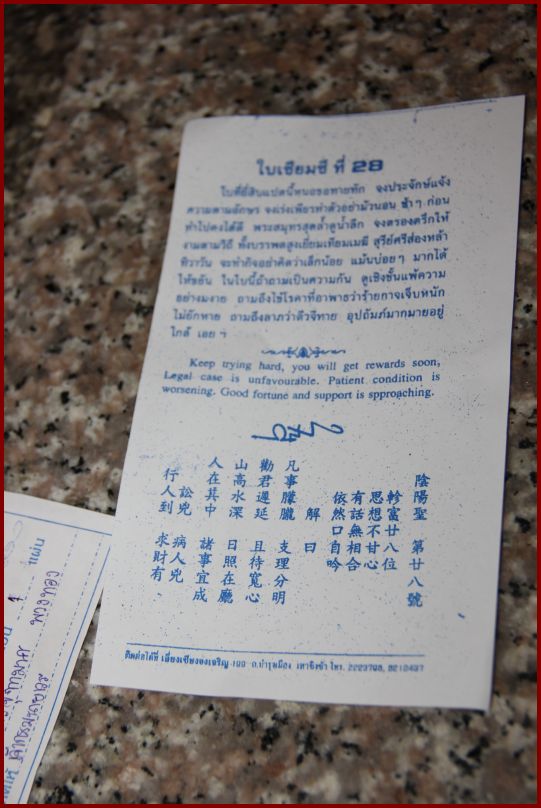 ใบเซียมซี ที่ 28
ใบที่ยี่สิบแปดนี้หนอขอทายทัก จงประจักษ์แจ้ง
ความตามอักษร จงเร่งเพียรทำตัวอย่ามัวนอน ช้า ๆ ก่อน
ทำไปคงได้ดี พระสมุทรสุดล้ำดูน้ำลึก จงตรองตรึกให้
งามตามวิถี ทั้งบรรพตสูงเยี่ยมเทียมเมฆี สุรีย์ศรีส่องหล้า
ทิวาวัน จะทำกิจอย่าคิดว่าเล็กน้อย แม้นบ่อย ๆ มากได้
ให้ขยัน ในใบนี้ถ้าถามเป็นความกัน ดูเชิงชั้นแพ้ความ
อย่างมงาย ถามถึงไข้โรคาที่อาพาธว่าร้ายกาจเจ็บหนัก
ไม่ยักหาย ถามถึงลาภว่าดีวจีทาย อุปถัมภ์มากมายอยู่
ใกล้ เอย ฯ
Keep trying hard, you will get rewards soon,
Legal case is unfavourable. Patient condition is
worsening. Good fortune and support is spproaching.
陰陽聖 第廿八號
軫富廿八位
思想不甘心
有話無相合
依然口自吟
解曰
凡事朦朧 支理分明
勸君遲延 且待寬心
山高水深 日照在廳
人在其中 諸事宜成
訟兇 病人兇
行人到 求財有
ติดต่อได้ที่ เลี่ยงเซียงจงเจริญ ถ.บำรุงเมือง เสาชิงช้า โทร.
แผ่น